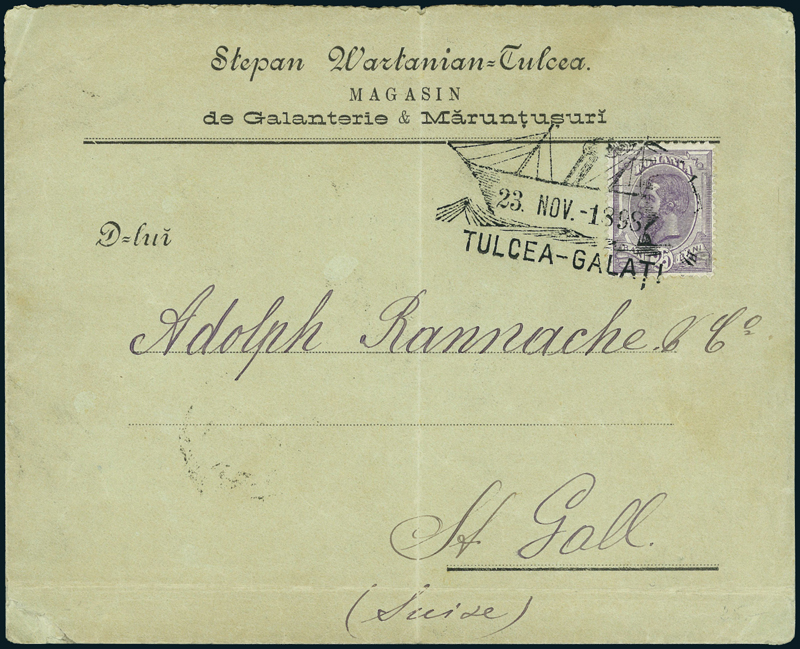 Stepan Wartanian=Tulcea.
MAGASIN
de Galanterie & Mărunțușurĭ
23. NOV.-1898
TULCEA-GALAȚI
25
D=luĭ
Adolph Rannache & Cº
St Gall.
(Suise)